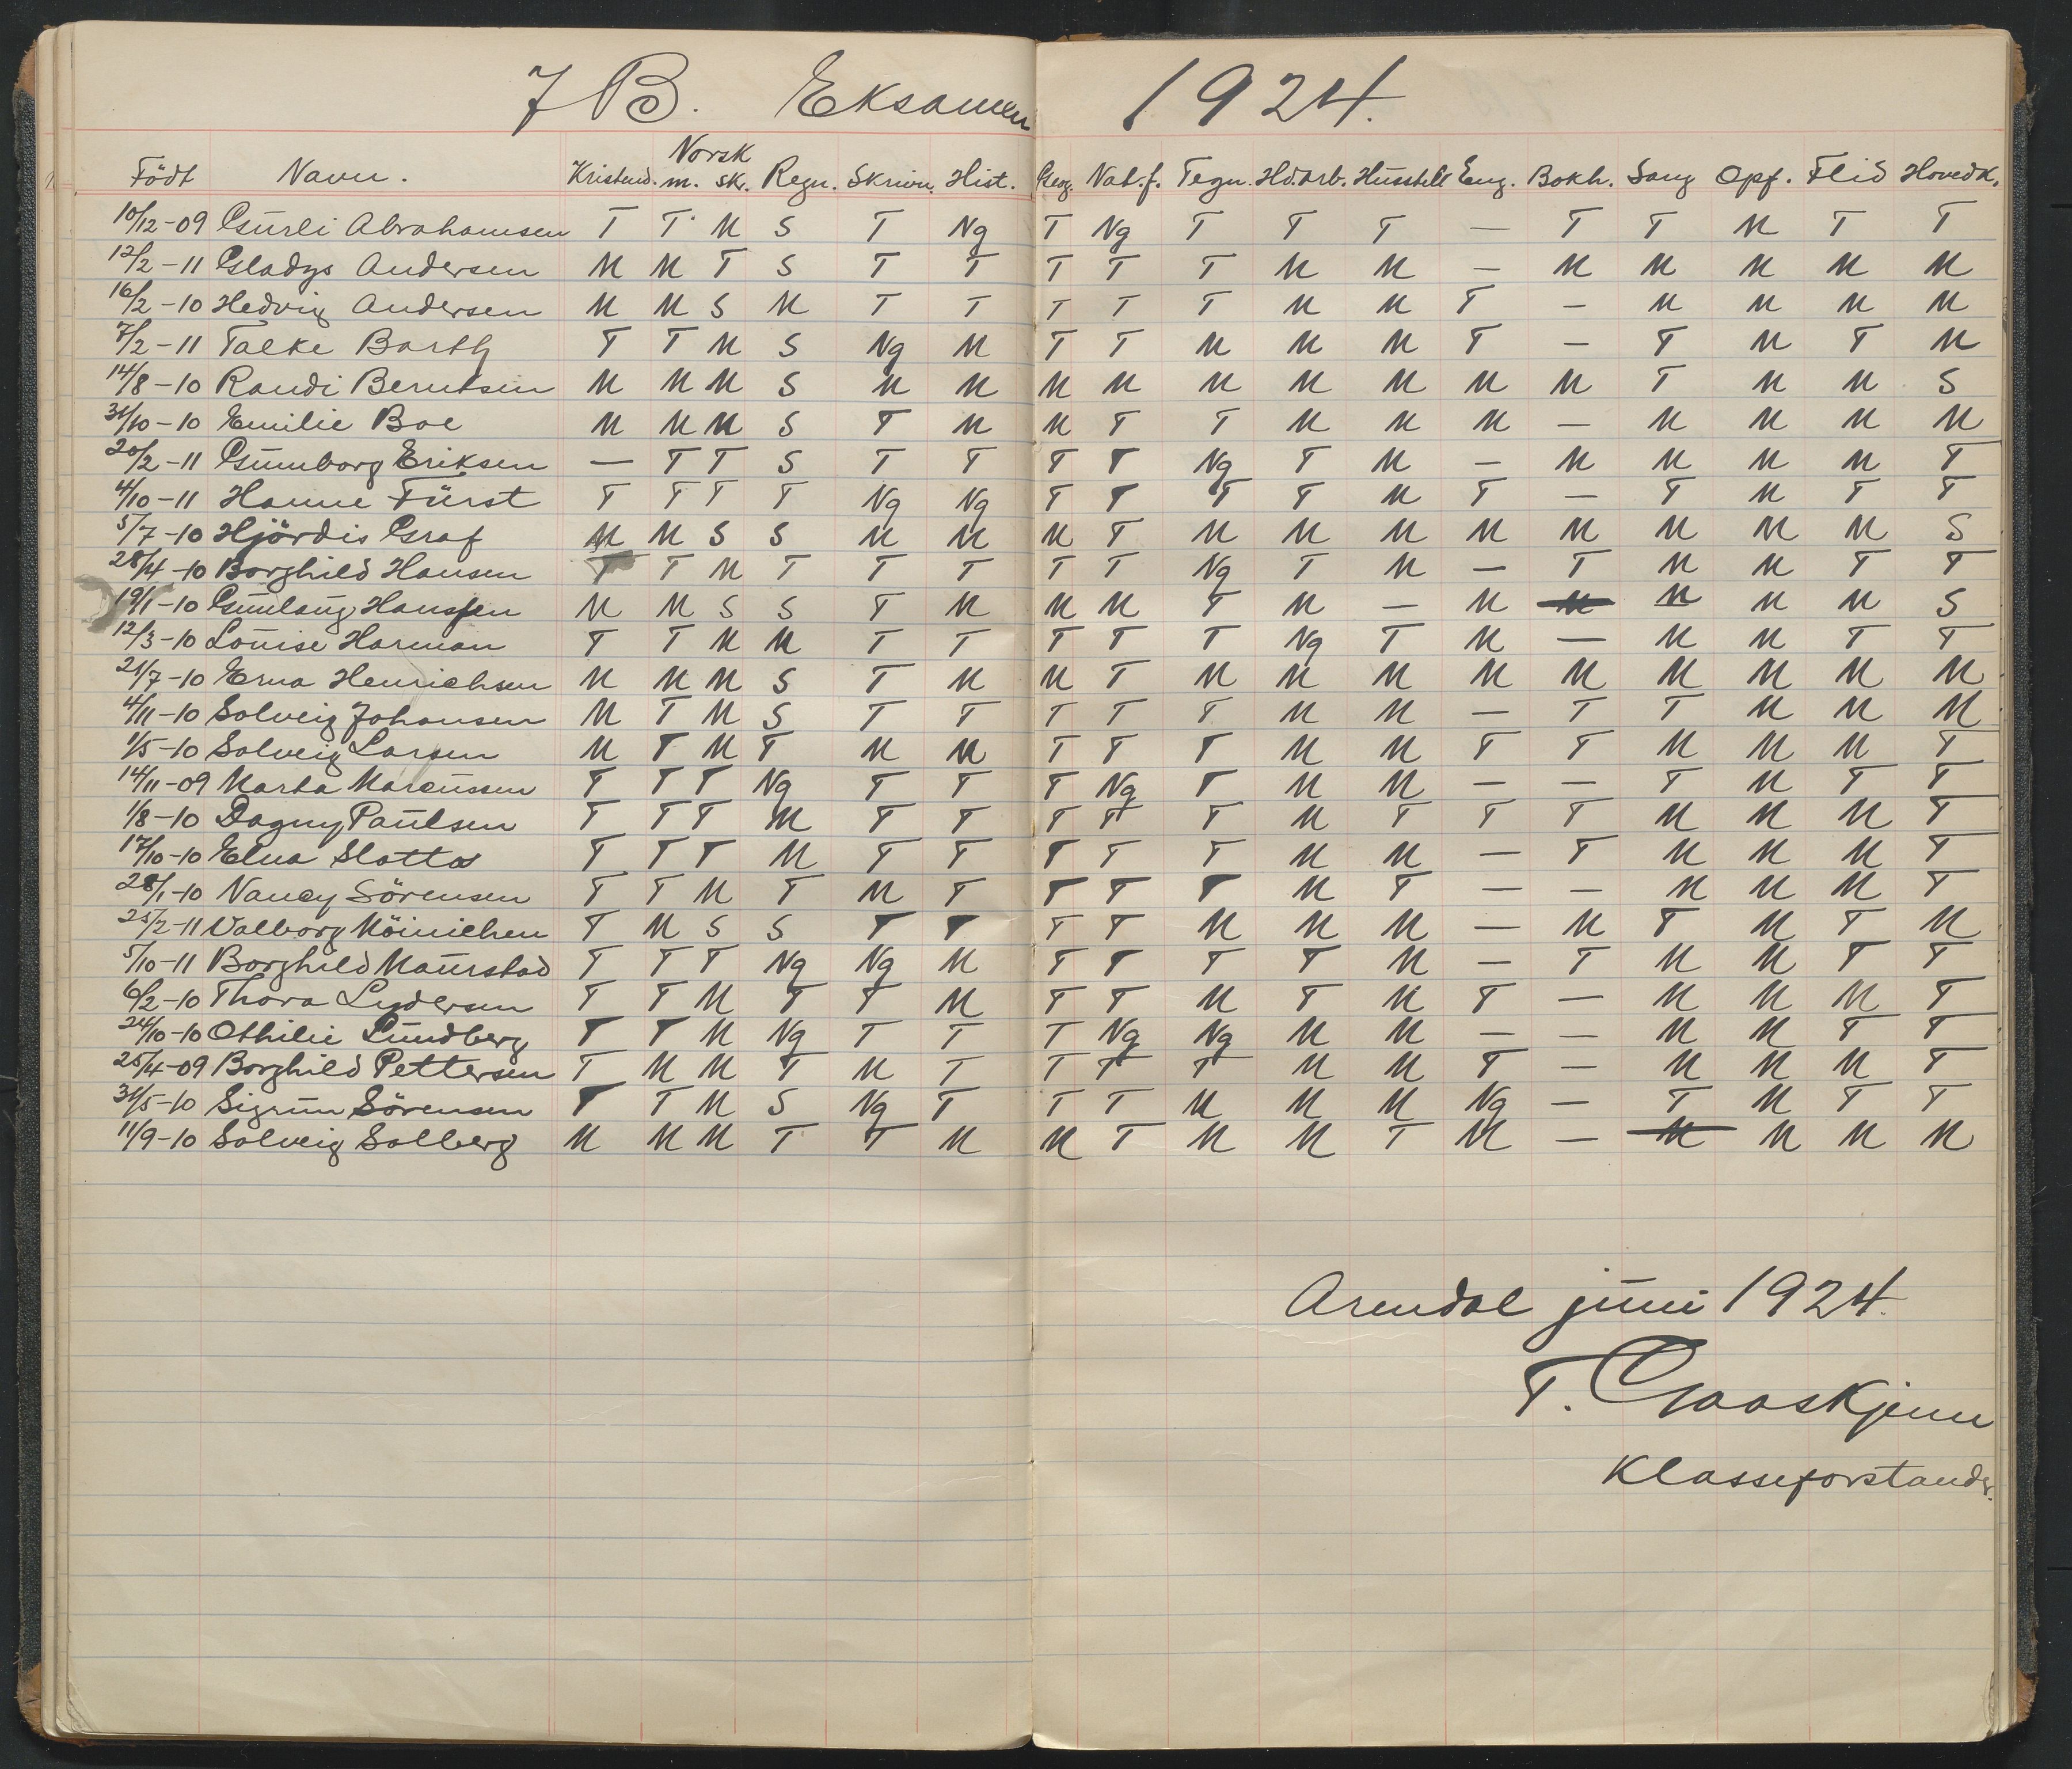 7 B. Eksamen 1924.
Norsk
Födt Navn. Kristend. m. skr. Regn. Skrivn. Hist. Geog. Nat.f. Tegn. Hd.arb. Husstell Eng. Bokh. Sang Opf. Flid Hovedk.
10/12-09 Gurli Abrahamsen T T M S T Ng T Ng T T T — T T M T T
12/2-11 Gladys Andersen M M T S T T T T T M M — M M M M M
16/2-10 Hedvig Andersen M M S M T T T T T M M T — M M M M
7/2-11 Talke Barth T T M S Ng M T T M M M T — T M T M
14/8-10 Randi Berntsen M M M S M M M M M M M M M T M M S
31/10-10 Emilie Boe M M M S T M M T T M M M — M M M M
20/2-11 Gunnborg Eriksen — T T S T T T T Ng T M — M M M M T
4/10-11 Hanne Fürst T T T T Ng Ng T T T T M T — T M T T
5/7-10 Hjördis Graf M M S S M M M T M M M M M M M M S
28/4-10 Borghild Hansen T T M T T T T T Ng T M — T M M T T
19/1-10 Gunlaug Hanssen M M S S T M M M T M — M M M M M S
12/3-10 Louise Harman T T M M T T T T T Ng T M — M M T T
21/7-10 Erna Henrichsen M M M S T M M T M M M M M M M M M
4/11-10 Solveig Johansen M T M S T T T T T M M — T T M M M
1/5-10 Solveig Larsen M T M T M M T T T M M T T M M M T
14/11-09 Marta Marcussen T T T Ng T T T Ng T M M — — T M T T
1/8-10 Dagny Paulsen T T T M T T T T T M T T T M M M T
17/10-10 Elna Slotta T T T M T T T T T M M — T M M M T
28/1-10 Nancy Sörensen T T M T M T T T T M T — — M M M T
25/2-11 Valborg Möinichen T M S S T T T T M M M — M T M T M
5/10-11 Borghild Maurstad T T T Ng Ng M T T T T M — T M M T T
6/2-10 Thora Lydersen T T M T T M T T M T M T — M M M T
24/10-10 Othilie Lundberg T T M Ng T T T Ng Ng M M — — M M T T
25/4-09 Borghild Pettersen T M M T M T T T T M M T — M M M T
31/5-10 Sigrun Sörensen T T M S Ng T T T M M M Ng — T M T T
11/9-10 Solveig Solberg M M M T T M M T M M T M — M M M M
Arendal juni 1924.
T. Gaaskjenn
Klasseforstander.